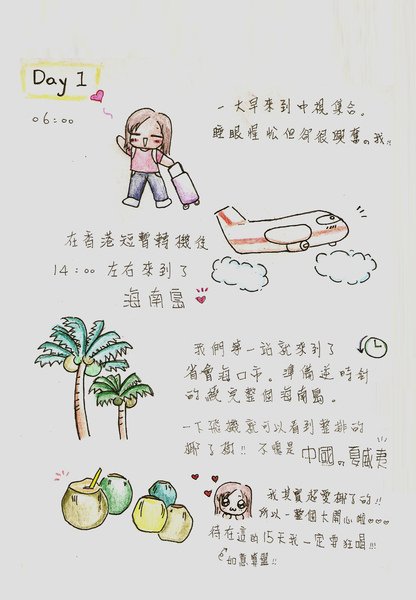 Day 1
06:00
一大早來到中視集合。
睡眼惺忪但卻很興奮。我!!
在香港短暫轉機後
14:00 左右來到了
海南島
我們第一站就來到了
省會海口市。準備逆時針
的繞完整個海南島。
一下飛機就可以看到整排的
椰子樹!! 不愧是中國の夏威夷
我其實超愛椰子的!!
所以一整個太開心啦
待在這的15天我一定要狂喝!!
如意算盤!!